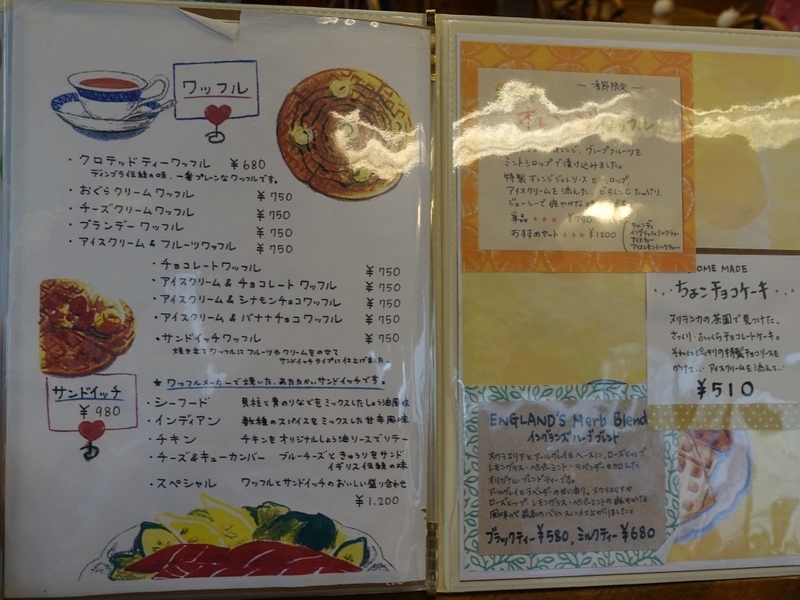 ワッフル
・クロテッドティーワッフル ¥680
ディンブラ伝統の味、一番プレンなワッフルです。
・おぐらクリームワッフル ¥750
・チーズクリームワッフル ¥750
・ブランデーワッフル ¥750
・アイスクリーム&フルーツワッフル ¥750
・チョコレートワッフル ¥750
・アイスクリーム&チョコレートワッフル ¥750
・アイスクリーム&シナモンチョコワッフル ¥750
・アイスクリーム&バナナチョコワッフル ¥750
・サンドイッチワッフル
焼き立てワッフルにフルーツやクリームをのせて
サンドイッチタイプに仕上げました
サンドイッチ
¥980
★ワッフルメーカーで焼いた、あたたかいサンドイッチです。
・シーフード 貝柱と青のりなどをミックスしたしょう油風味
・インディアン 数種のスパイスをミックスした甘辛風味
・チキン チキンをオリジナルしょう油ソースでソテー
・チーズ&キューカンバー ブルーチーズときゅうりをサンド
イギリス伝統の味
・スペシャル ワッフルとサンドイッチのおいしい盛り合わせ
¥1,200
― 季節限定 ―
オレンジ、グレープフルーツを
ミントシロップで漬け込みました。
特製オレンジジュレソースとシロップ
アイスクリームを添えた、ビタミンCたっぷり、
ジューシーで爽やかな
単品 ¥750
おすすめセット ¥1200
キャンディ
イングリッシュミルクティー
アイスティー
アイスレモンミルクティー
HOME MADE
ちょこチョコケーキ
スリランカの茶園で見つけた、
さっくり・ふっくらチョコレートケーキ。
それにピッタリの特製チョコソースを
かけて… アイスクリームを添えて…
¥510
ENGLAND'S Herb Blend
イングランズ ハーブブレンド
ヌワラエリヤとアールグレイをベースに、ローズヒップ
レモングラス・ペパーミント・ラベンダーを
オリジナルブレンドティーです。
アールグレイとラベンダーの甘い香り、ヌワラエリヤ
ローズヒップ・レモングラス・ペパーミントの爽やかな
ブラックティー ¥580, ミルクティー ¥680